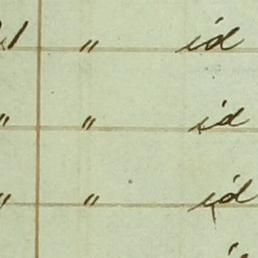 1 " id
" " id
" " id